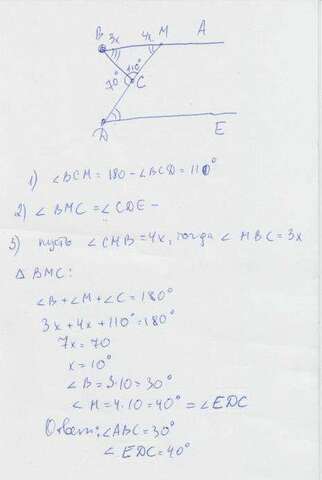 B 3x 4x M A
110°
70° C
D E
1) ∠BCM = 180 - ∠BCD = 110°
2) ∠BMC = ∠CDE -
3) Пусть ∠CMB = 4x, тогда ∠MBC = 3x
Δ BMC:
∠B + ∠M + ∠C = 180°
3x + 4x + 110° = 180°
7x = 70
x = 10°
∠B = 3·10 = 30°
∠M = 4·10 = 40° = ∠EDC
Ответ: ∠ABC = 30°
∠EDC = 40°